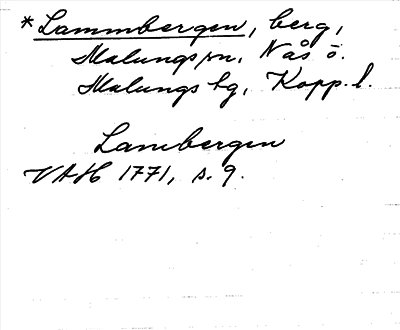 *Lammbergen, berg,
Malungs sn, Nås ö.
Malungs tg, Kopp. l.
Lambergen
VAH 1771, s. 9.